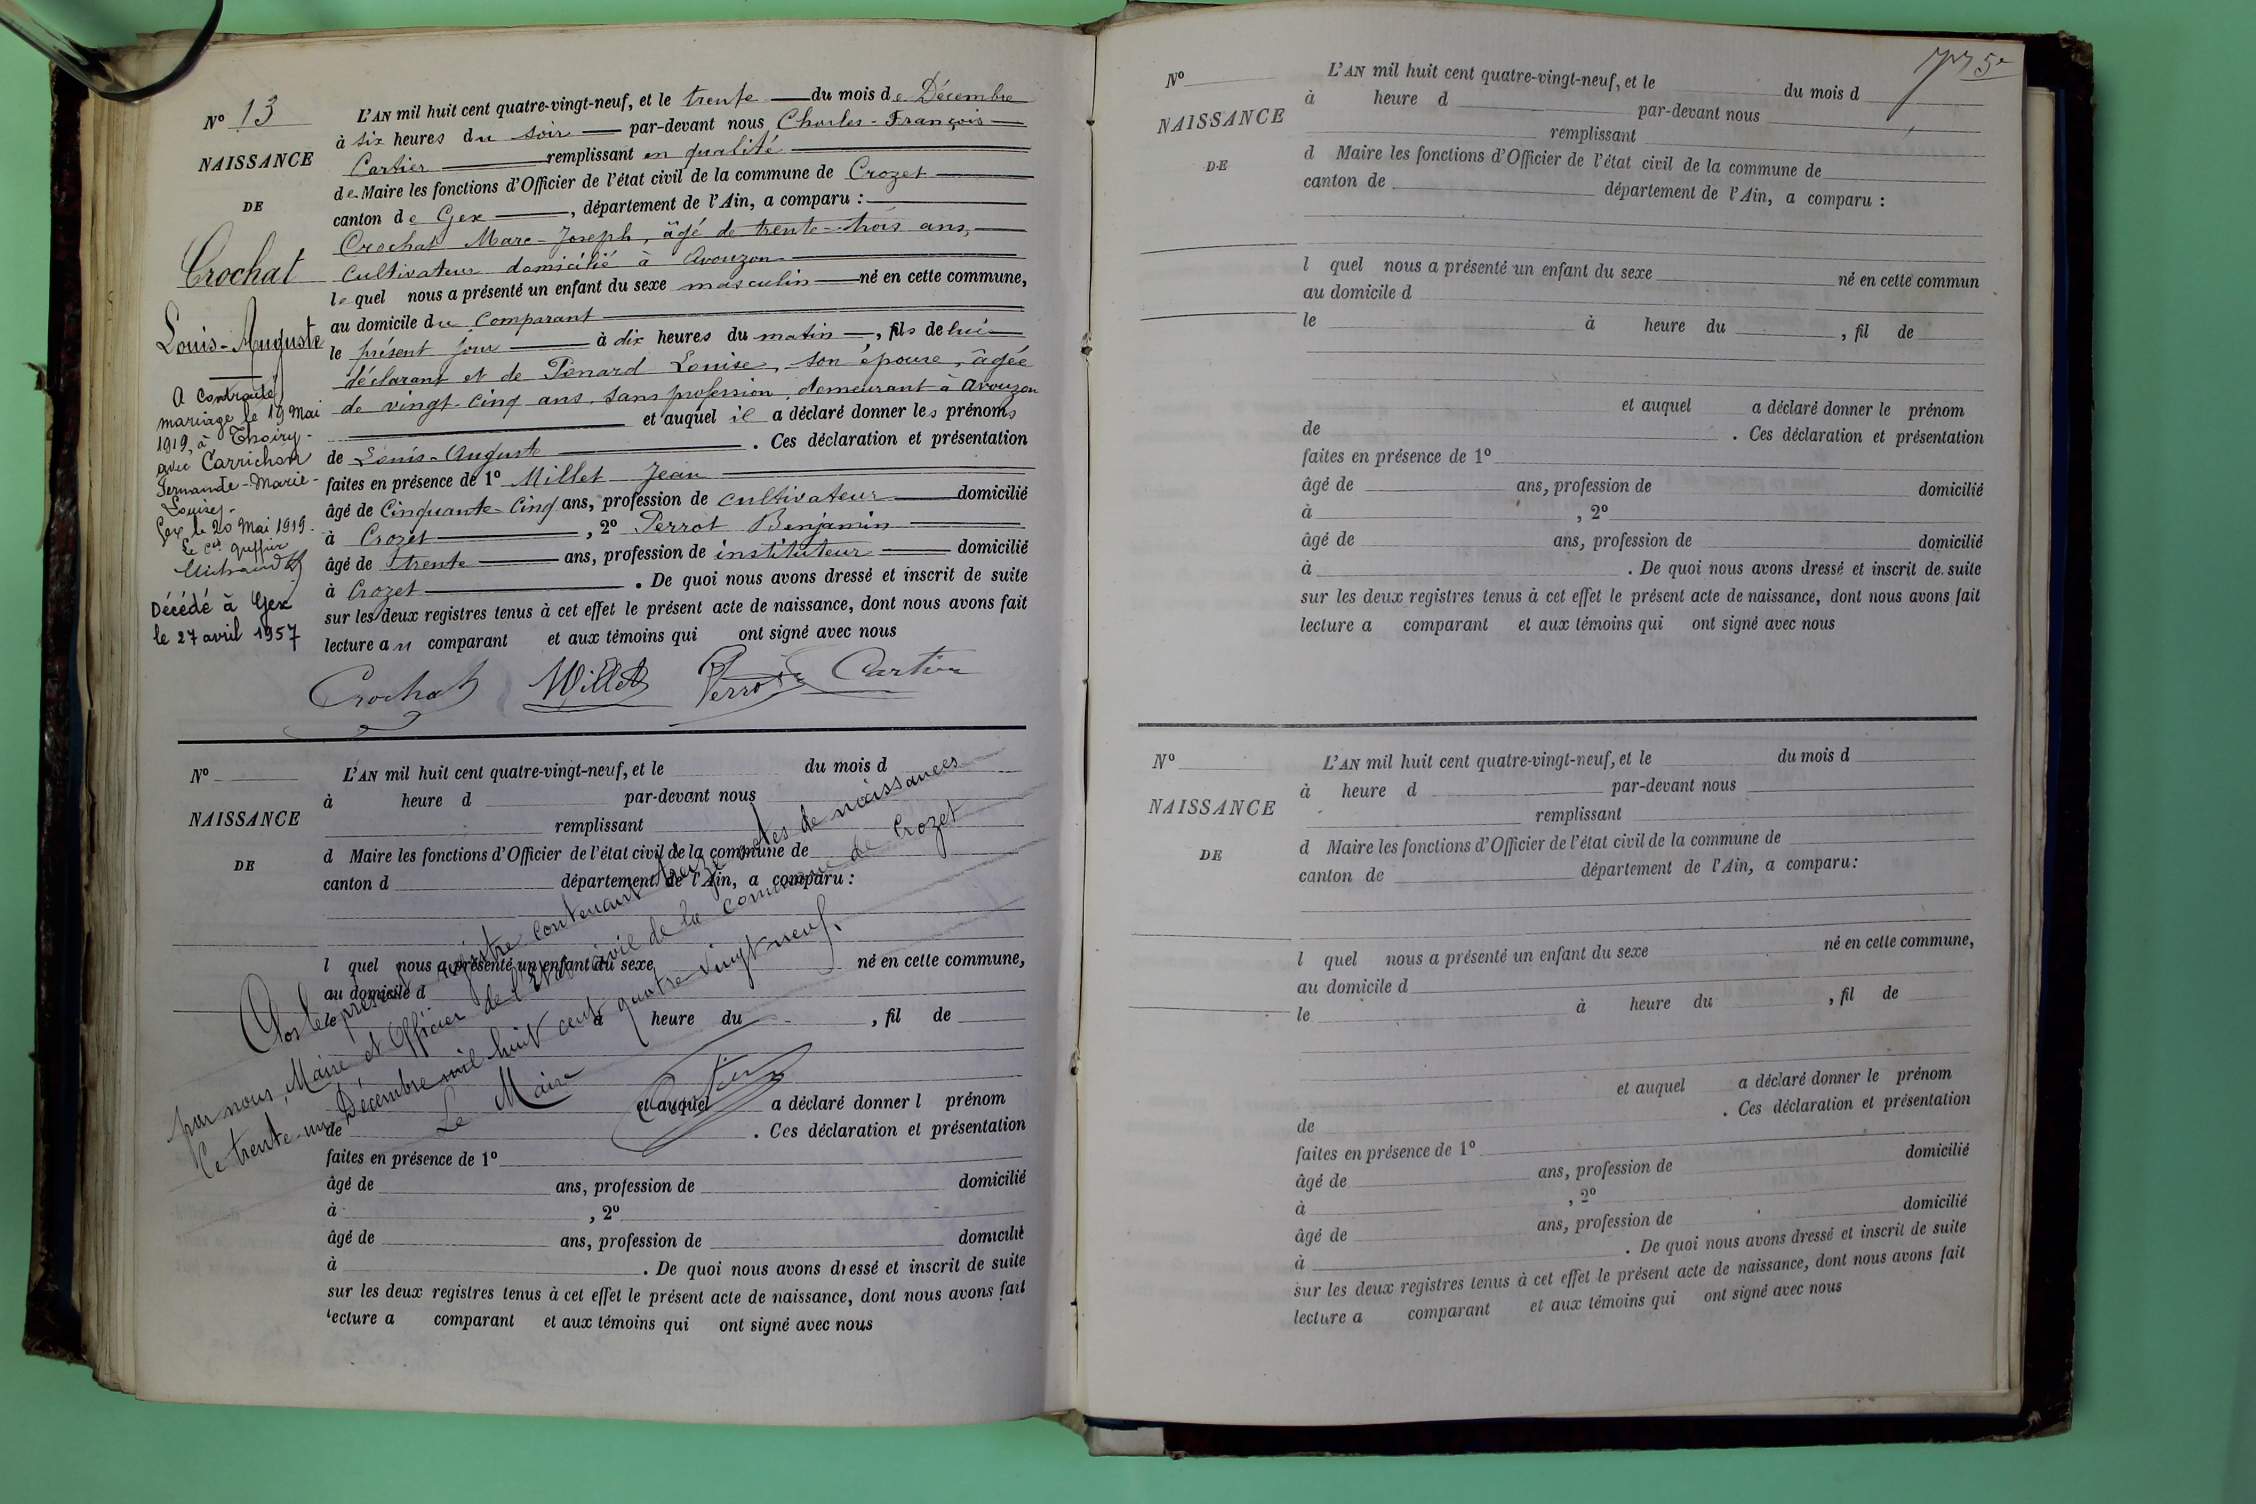 N° 13
NAISSANCE
DE
Crochat
Louis-Auguste
A contracté
mariage le 19 Mai
1919, à Thoiry -
avec Carrichon
Fernande-Marie-
Louise, -
Gex le 20 Mai 1919.
Le Ces greffier
Décédé à Gex
le 27 avril 1957
L'AN mil huit cent quatre-vingt-neuf, et le trente du mois de Décembre
à six heures du soir par-devant nous Charles-François
Cartier remplissant en qualité
de Maire les fonctions d'Officier de l'état civil de la commune de Crozet
canton de Gex, département de l'Ain, a comparu :
Crochat Marc-Joseph, âgé de trente-trois ans,
cultivateur domicilié à Avouzon
lequel nous a présenté un enfant du sexe masculin né en cette commune,
au domicile du comparant
le présent jour à dix heures du matin, fils de lui
déclarant et de Penard Louise, son épouse, âgée
de vingt-cinq ans, sans profession, demeurant à Avouzon
et auquel il a déclaré donner les prénoms
de Louis-Auguste. Ces déclaration et présentation
faites en présence de 1° Millet Jean
âgé de cinquante-cinq ans, profession de cultivateur domicilié
à Crozet, 2° Perrot Benjamin
âgé de trente ans, profession de instituteur domicilié
à Crozet. De quoi nous avons dressé et inscrit de suite
sur les deux registres tenus à cet effet le présent acte de naissance, dont nous avons fait
lecture au comparant et aux témoins qui ont signé avec nous
Crochat Millet Perrot Cartier
N°
NAISSANCE
DE
L'AN mil huit cent quatre-vingt-neuf, et le du mois d
à heure d par-devant nous
remplissant
d Maire les fonctions d'Officier de l'état civil de la commune de
canton d département de l'Ain, a comparu :
l quel nous a présenté un enfant du sexe né en cette commune,
au domicile d
le à heure du , fil de
et auquel a déclaré donner l prénom
de . Ces déclaration et présentation
faites en présence de 1°
âgé de ans, profession de domicilié
à , 2°
âgé de ans, profession de domicilié
à . De quoi nous avons dressé et inscrit de suite
sur les deux registres tenus à cet effet le présent acte de naissance, dont nous avons fait
lecture a comparant et aux témoins qui ont signé avec nous
Clos le présent registre contenant treize actes de naissances
par nous, Maire et Officier de l'Etat civil de la commune de Crozet
le trente-un Décembre mil huit cent quatre vingt neuf.
Le Maire
Cartier
5e
N°
NAISSANCE
DE
L'AN mil huit cent quatre-vingt-neuf, et le du mois d
à heure d par-devant nous
remplissant
d Maire les fonctions d'Officier de l'état civil de la commune de
canton de département de l'Ain, a comparu :
l quel nous a présenté un enfant du sexe né en cette commun
au domicile d
le à heure du , fil de
et auquel a déclaré donner le prénom
de . Ces déclaration et présentation
faites en présence de 1°
âgé de ans, profession de domicilié
à , 2°
âgé de ans, profession de domicilié
à . De quoi nous avons dressé et inscrit de suite
sur les deux registres tenus à cet effet le présent acte de naissance, dont nous avons fait
lecture a comparant et aux témoins qui ont signé avec nous
N°
NAISSANCE
DE
L'AN mil huit cent quatre-vingt-neuf, et le du mois d
à heure d par-devant nous
remplissant
d Maire les fonctions d'Officier de l'état civil de la commune de
canton de département de l'Ain, a comparu :
l quel nous a présenté un enfant du sexe né en cette commune,
au domicile d
le à heure du , fil de
et auquel a déclaré donner le prénom
de . Ces déclaration et présentation
faites en présence de 1°
âgé de ans, profession de domicilié
à , 2°
âgé de ans, profession de domicilié
à . De quoi nous avons dressé et inscrit de suite
sur les deux registres tenus à cet effet le présent acte de naissance, dont nous avons fait
lecture a comparant et aux témoins qui ont signé avec nous